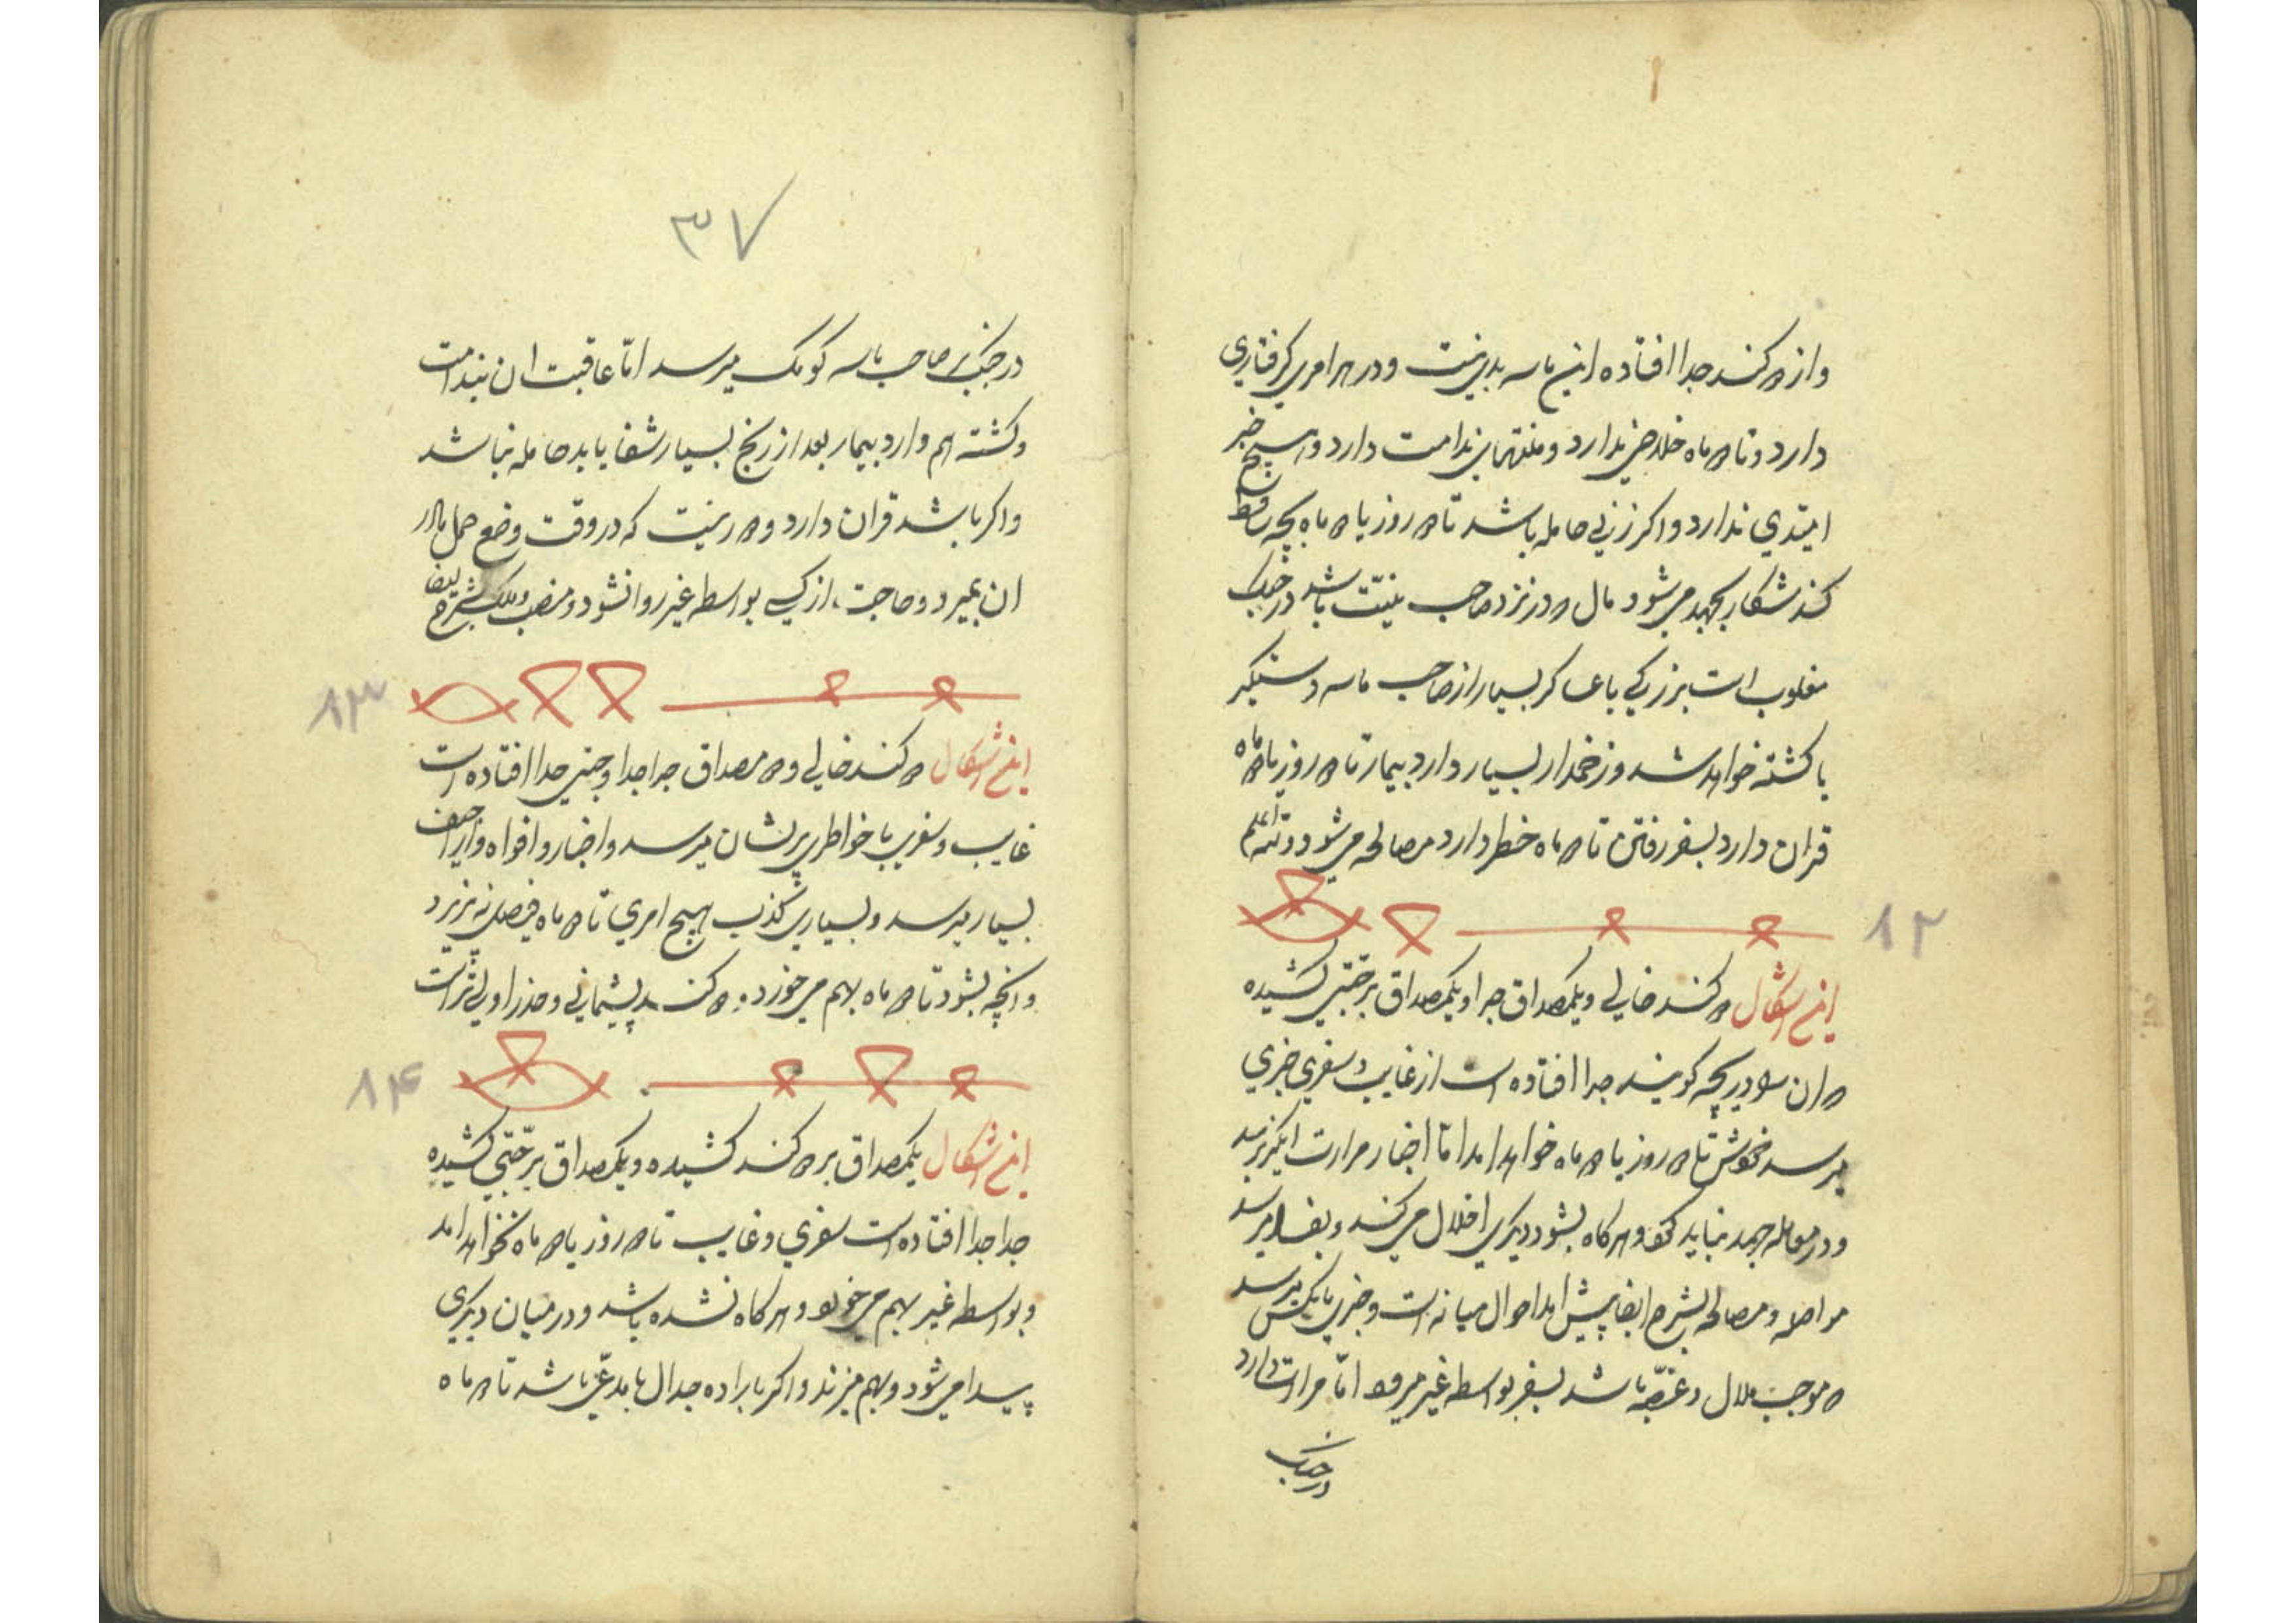 و از دو کند جدا افتاده این ماسه بد نیست و در هر امری گرفتاری
دارد و تا دو ماه خلاصی ندارد و منتهای ندامت دارد و هیچ خبر
امیدی ندارد و اکر زنی حامله باشد تا دو روز یا دو ماه بچه ساقط
کند شکار بجهد می شود مال در نزد صاحب نیت باشد در جنک
مغلوب است بزرکی با عساکر بسیار از صاحب ماسه دستکیر
یا کشته خواهد شد و زخمدار بسیار دارد بیمار تا دو روز یا دو ماه
قران دارد بسفر رفتن تا دو ماه خطر دارد مصالحه می شود والله اعلم
۸۲
این اشکال دو کند خالی و یکمصداق جدا و یکمصداق بر جنبی کشیده
دو ان سو دریچه کویند جدا افتاده است از غایب و سفری خبری
میرسد خودش تا دو روز یا دو ماه خواهد امد اما اخبار مرارت انکیز میرسد
و در معامله جهد نباید کرد و هرکاه بشود دیکری اخلال می کند و بفساد میرسد
مواصله و مصالحه بشرح ایضا پیش امد احوال میانه است و خبری بانکس میرسد
موجب ملال و غصه باشد بسفر بواسطه غیر میرود اما مرارت دارد
در جنک
۳۷
در جنک بر صاحب ماسه کومک میرسد اما عاقبت ان ندامت
و کشته هم دارد بیمار بعد از رنج بسیار شفا یابد حامله نباشد
و اکر باشد قران دارد و دور نیست که در وقت وضع حمل مادر
ان بمیرد و حاجت از کسی بواسطه غیر روا نشود و منصب و ملک بشرح ایضا
۸۳
این اشکال دو کند خالی و دو مصداق جدا جدا و جنبی جدا افتاده است
غایب و سفری با خواطر پریشان میرسد و اخبار و افواه و اراجیف
بسیار میرسد و بسیاریش کذب هیچ امری تا دو ماه فیصل نپذیرد
و انچه بشود تا دو ماه بهم می خورد دو کند پشیمانی و حذر اولی تر است
۸۴
این اشکال یکمصداق بر دو کند کشیده و یکمصداق بر جنبی کشیده
جدا جدا افتاده است سفری و غایب تا دو روز یا دو ماه نخواهد امد
و بواسطه غیر بهم می خورد و هرکاه نشده باشد و در میان دیکری
پیدا می شود و بهم میزند و اکر باراده جدال با مدعی باشد تا دو ماه